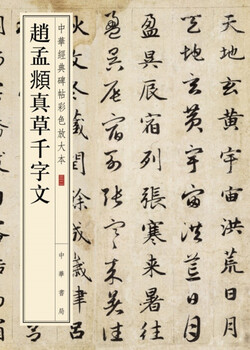 趙孟頫真草千字文
中華經典碑帖彩色放大本
中華書局
天地玄黃宇宙洪荒日月
天地玄黃宇宙洪荒日月
盈昃辰宿列張寒來暑往
盈昃辰宿列張寒來暑往
冬藏閏餘成歲律呂